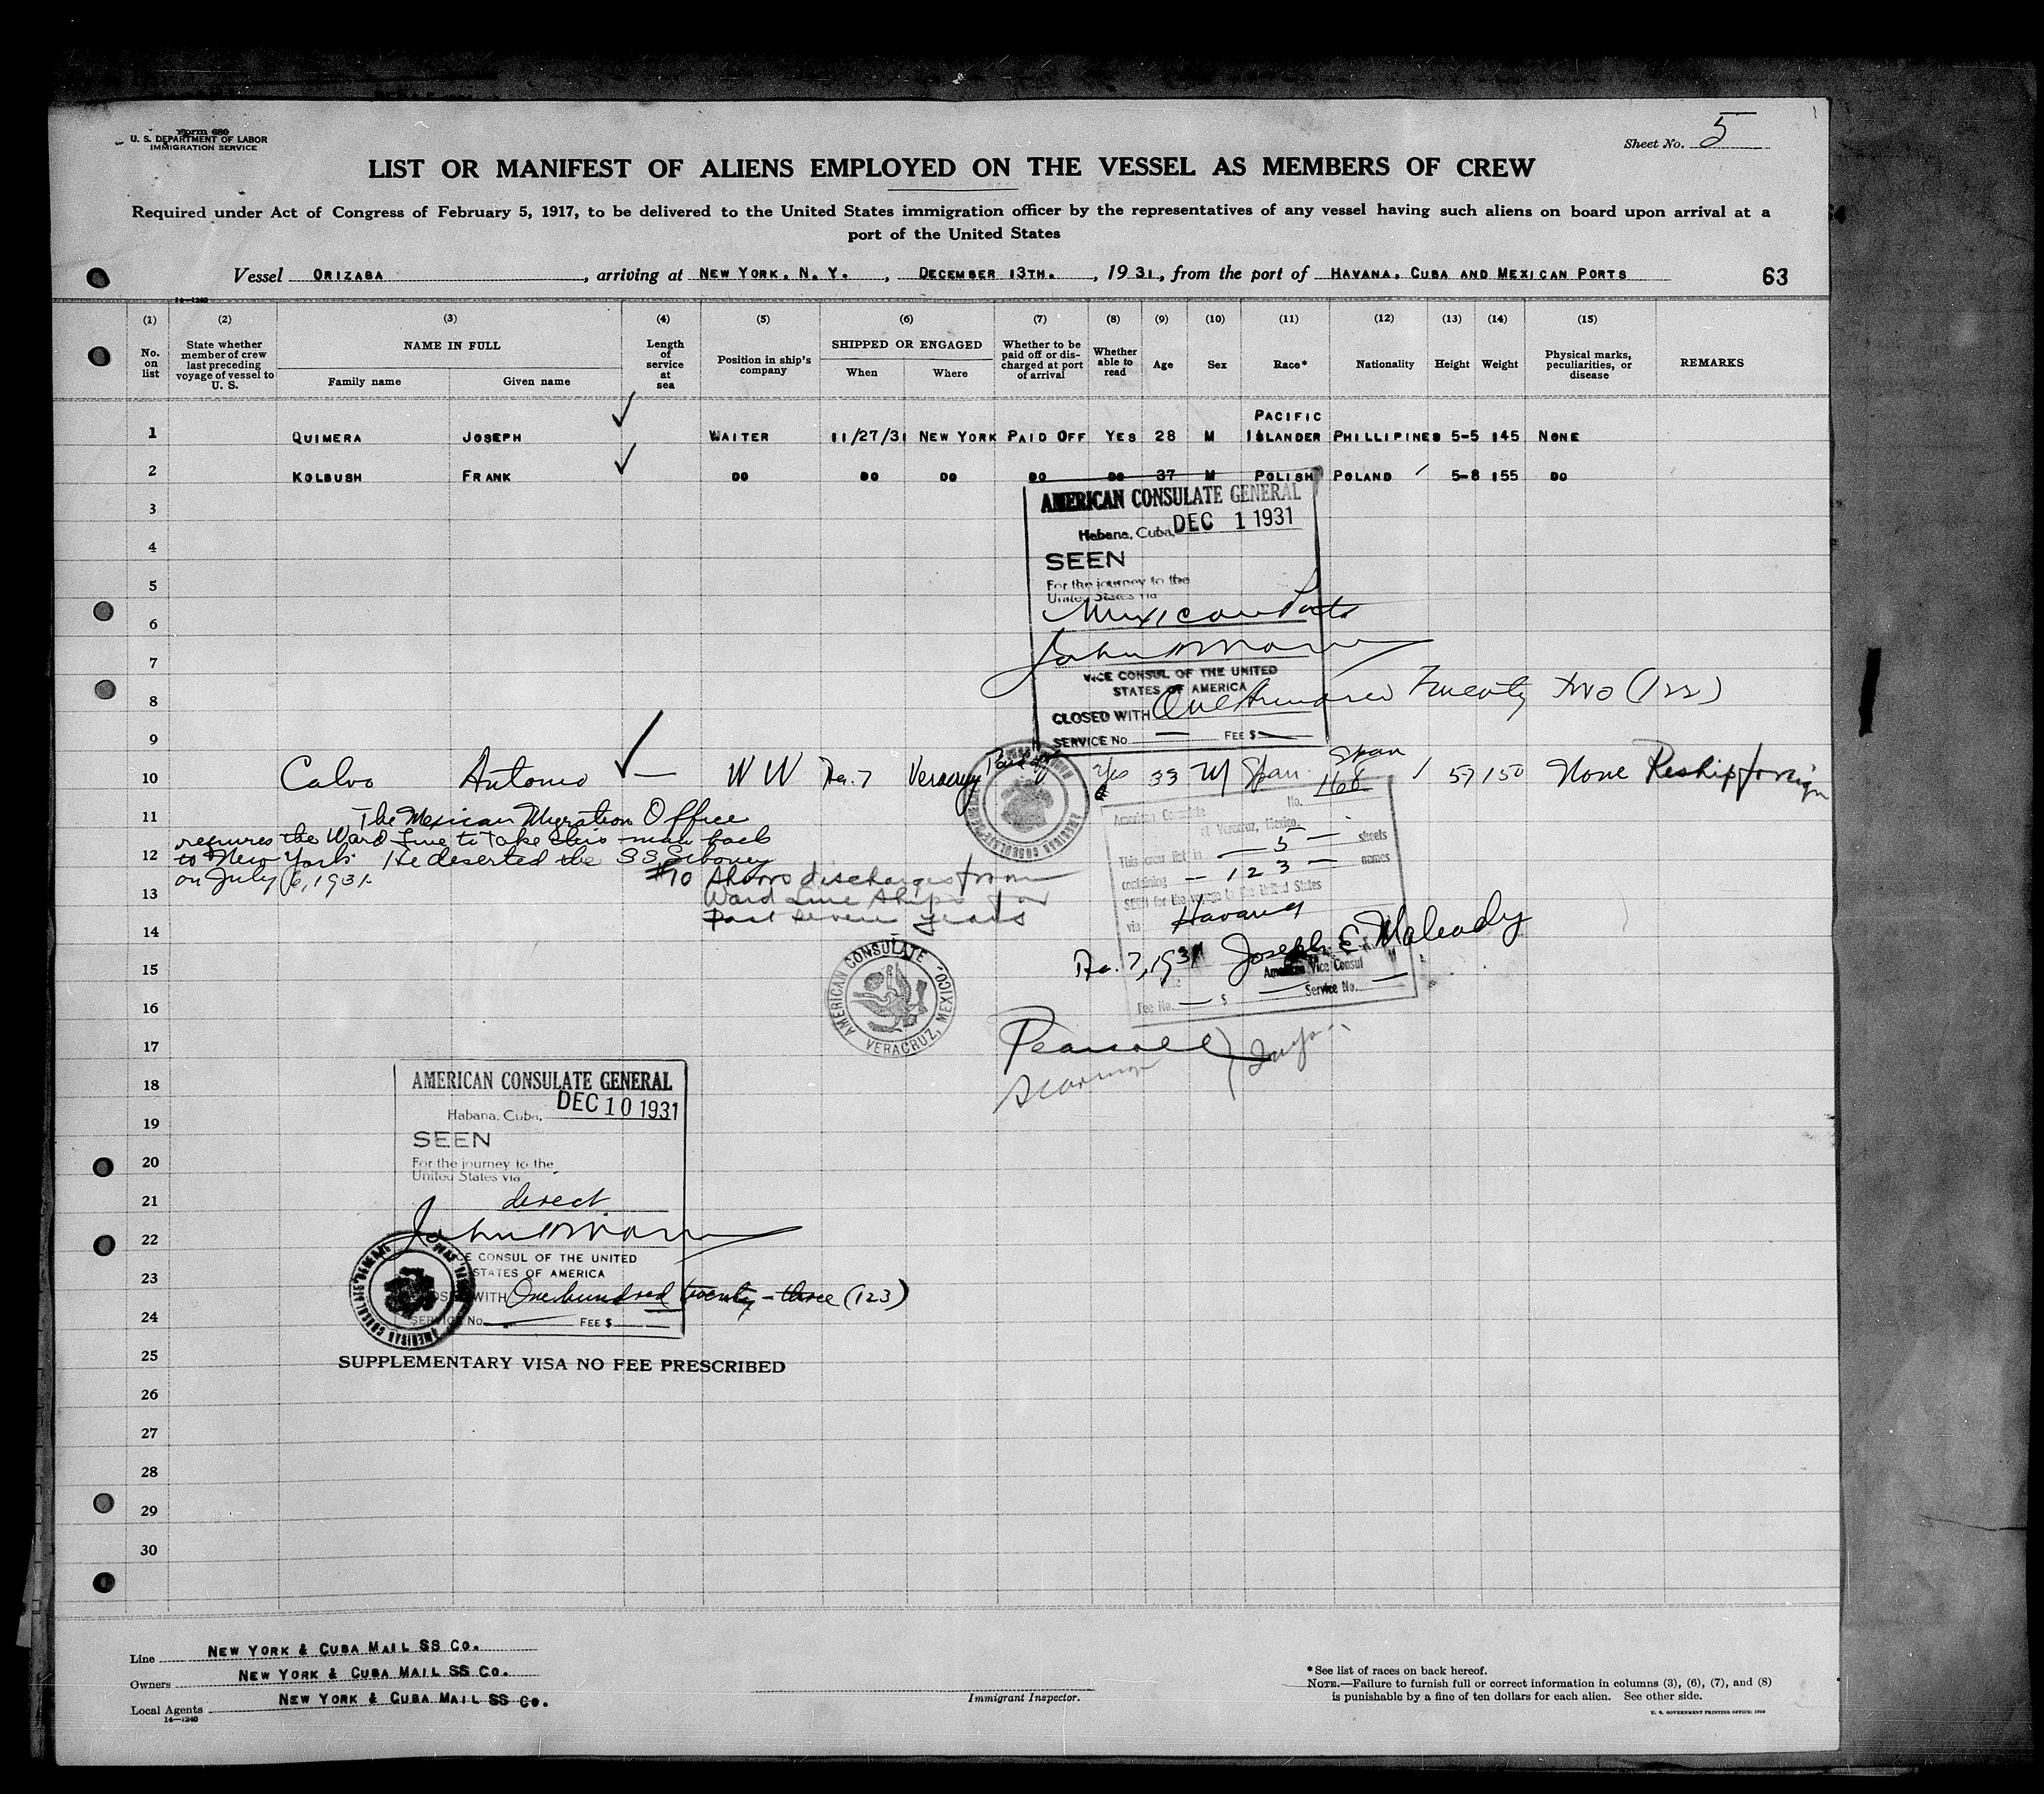 Form 680
U. S. DEPARTMENT OF LABOR
IMMIGRATION SERVICE
Sheet No. 5
LIST OR MANIFEST OF ALIENS EMPLOYED ON THE VESSEL AS MEMBERS OF CREW
Required under Act of Congress of February 5, 1917, to be delivered to the United States immigration officer by the representatives of any vessel having such aliens on board upon arrival at a
port of the United States
Vessel ORIZABA, arriving at NEW YORK, N. Y., DECEMBER 13TH., 1931, from the port of HAVANA, CUBA AND MEXICAN PORTS 63
14—1240
(1) (2) (3) (4) (5) (6) (7) (8) (9) (10) (11) (12) (13) (14) (15)
No. on list
State whether member of crew last preceding voyage of vessel to U. S.
NAME IN FULL
Family name Given name
Length of service at sea
Position in ship's company
SHIPPED OR ENGAGED
When Where
Whether to be paid off or discharged at port of arrival
Whether able to read
Age
Sex
Race*
Nationality
Height
Weight
Physical marks, peculiarities, or disease
REMARKS
1 QUIMERA JOSEPH ✓ WAITER 11/27/31 NEW YORK PAID OFF YES 28 M PACIFIC ISLANDER PHILLIPINES 5-5 145 NONE
2 KOLBUSH FRANK ✓ DO DO DO DO DO 37 M POLISH POLAND / 5-8 155 DO
3
4
5
6
7
8
9
AMERICAN CONSULATE GENERAL
Habana, Cuba, DEC 1 1931
SEEN
For the journey to the
United States via
Mexican Ports
VICE CONSUL OF THE UNITED
STATES OF AMERICA
CLOSED WITH One hundred Twenty two (122)
SERVICE No. — FEE $ —
10 Calvo Antonio ✓ — W W De. 7 Veracruz Paid off Yes 33 M Span. Span / 57 150 None Reship foreign
11 The Mexican Migration Office
requires the Ward Line to take this man back
12 to New York. He deserted the SS Siboney
on July 6, 1931.
#10 Shows discharges from
13 Ward Line Ships for
past seven years
14
15
16
17
18
19
20
21
22
23
24
25
26
27
28
29
30
American Consulate
at Veracruz, Mexico.
No. 168
This crew list in — 5 — sheets
containing — 123 — names
SEEN for the voyage to the United States
via Havana
De. 7, 1931 Joseph E. Maleady
American Vice Consul
Fee No. — $ — Service No. —
AMERICAN CONSULATE
VERACRUZ, MEXICO.
AMERICAN CONSULATE GENERAL
Habana, Cuba, DEC 10 1931
SEEN
For the journey to the
United States via
direct
CONSUL OF THE UNITED
STATES OF AMERICA
WITH One hundred twenty-three (123)
SERVICE No. — FEE $ —
SUPPLEMENTARY VISA NO FEE PRESCRIBED
Line NEW YORK & CUBA MAIL SS CO.
Owners NEW YORK & CUBA MAIL SS CO.
Local Agents NEW YORK & CUBA MAIL SS CO.
14—1240
Immigrant Inspector.
*See list of races on back hereof.
NOTE.—Failure to furnish full or correct information in columns (3), (6), (7), and (8)
is punishable by a fine of ten dollars for each alien. See other side.
U. S. GOVERNMENT PRINTING OFFICE: 1930